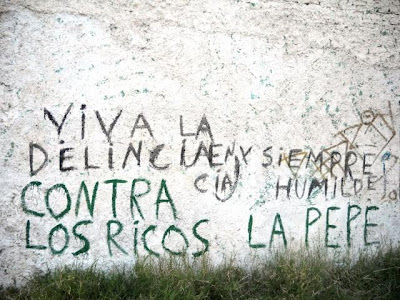 VIVA LA
DELINCIAEN Y SIEMPRE
CIA HUMILDE!
CONTRA
LOS RICOS LA PEPE